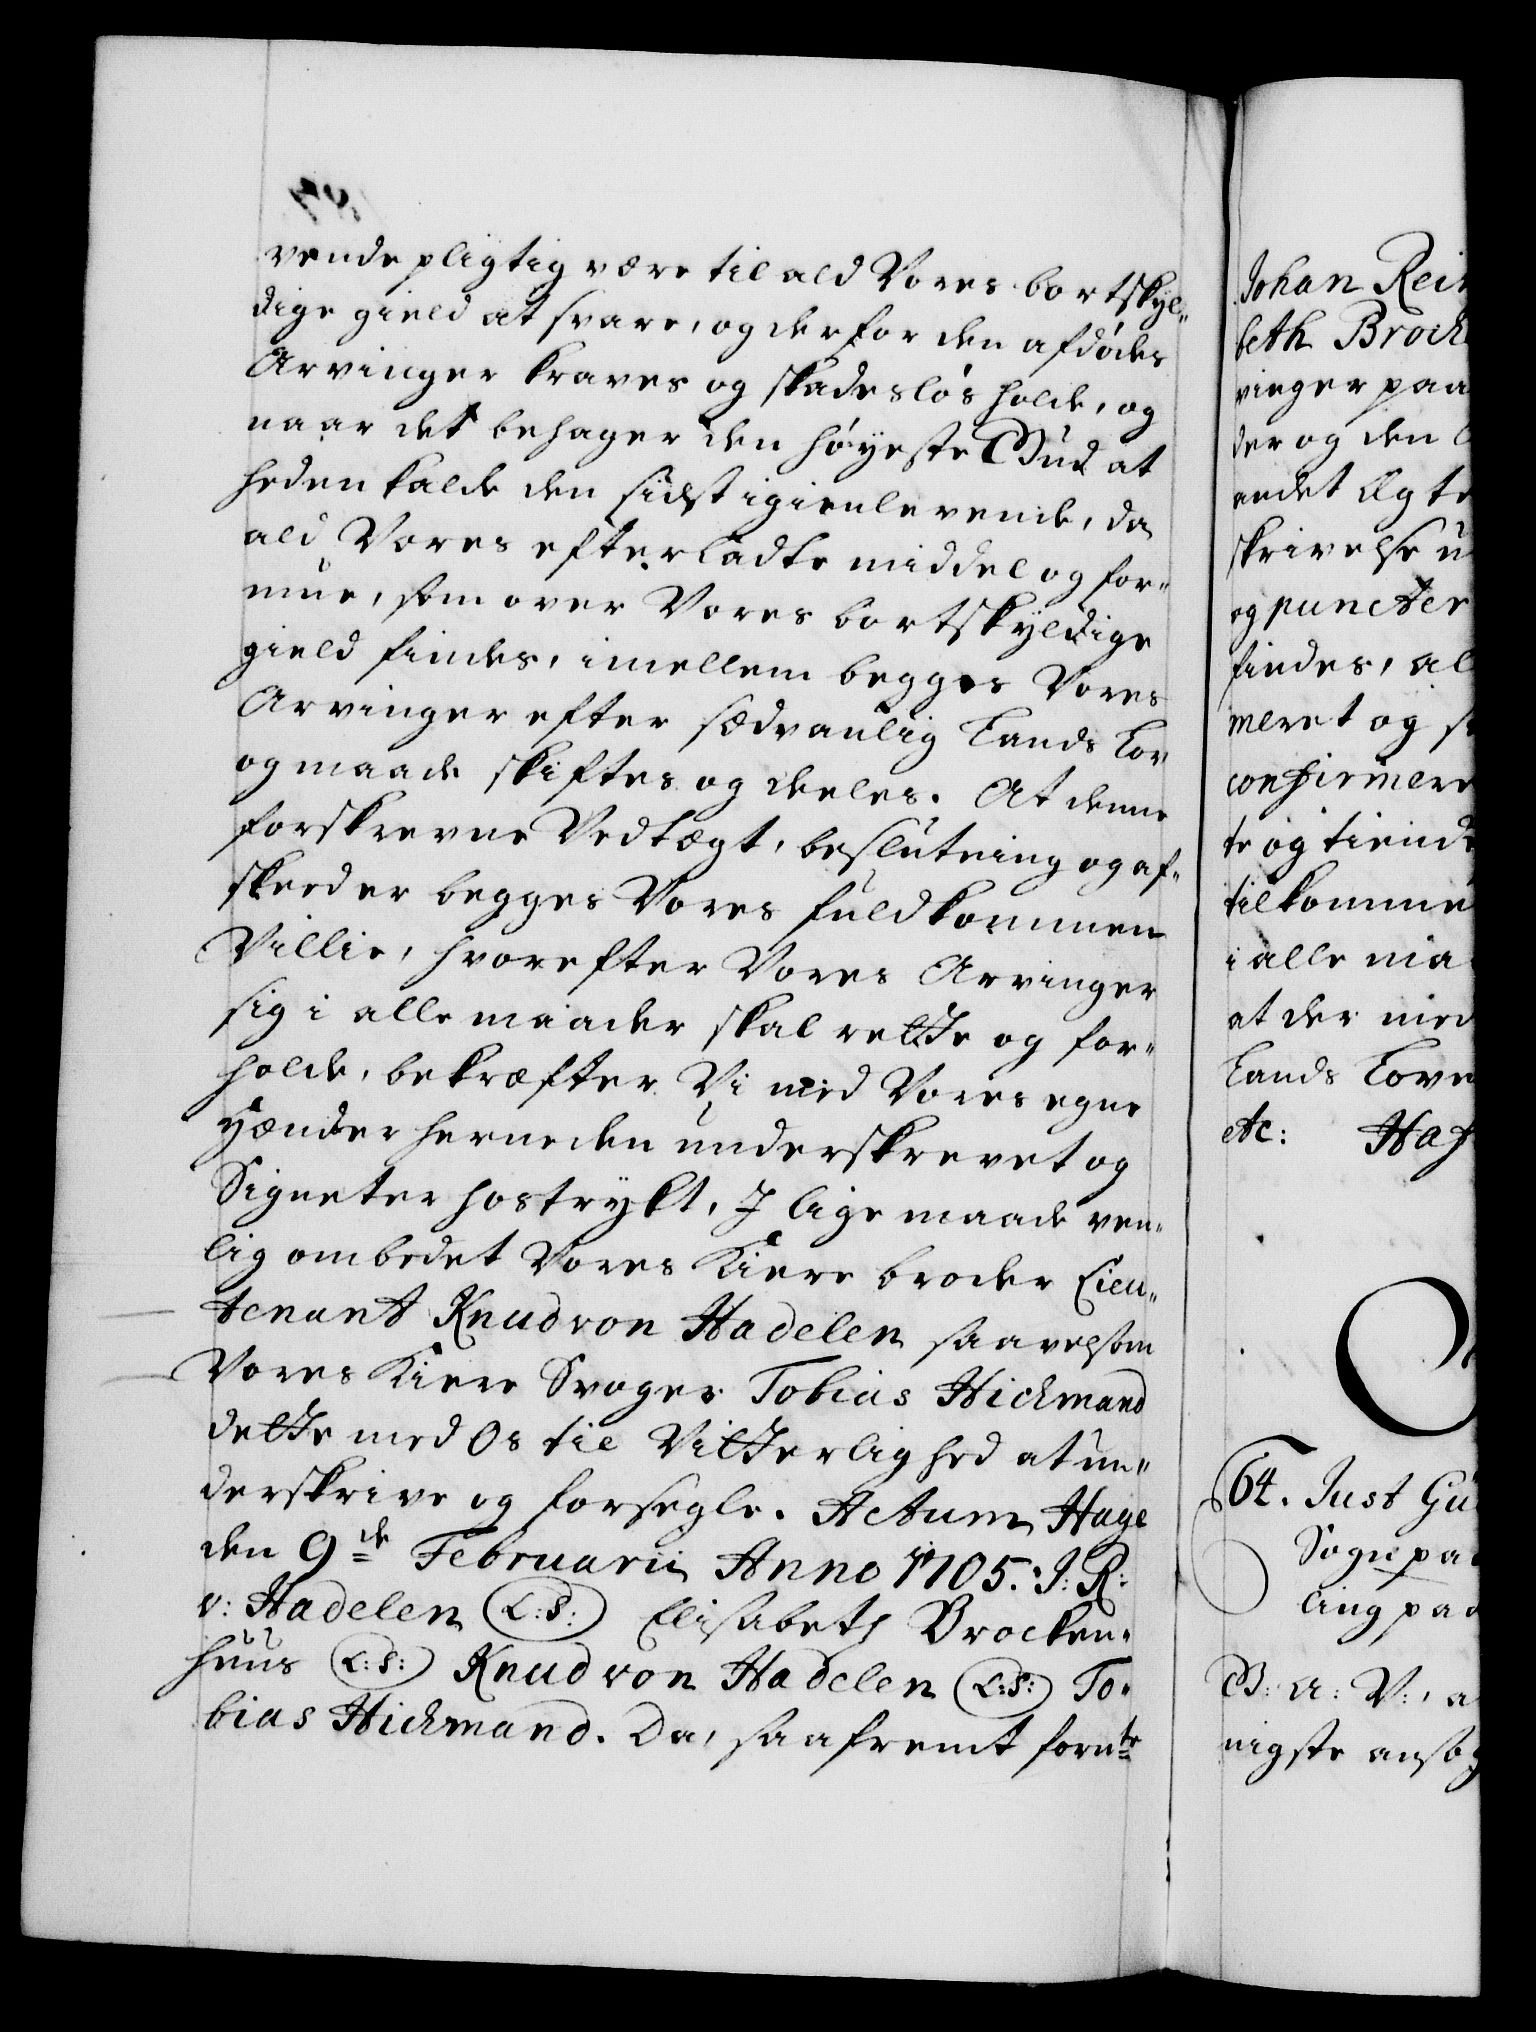 vende pligtig være til ald Vores bortskyl-
dige gield at svare, og derfor den afdødes
Arvinger kraves og skadesløs holde, og
naar det behager den høyeste Gud at
heden kalde den sidst igienlevende, da
ald Vores efterladte middel og for-
mue, som over Vores bortskyldige
gield findes, imellem begges Vores
Arvinger efter sædvanlig Lands Lov
og maade skiftes og deeles. At denne
forskrevne Vedtægt, beslutning og af-
skeed er begges Vores fuldkommen
Villie, hvorefter Vores Arvinger
sig i alle maader skal rette og for-
holde, bekræfter Vi med Vores egne
Hænder herneden underskrevet og
Signeter hostrykt, J lige maade ven-
lig ombedet Vores Kiere broder Lieu-
tenant Knud von Hadelen saavelsom
Vores Kiere Svoger Tobias Hickmand
dette med Os til Vitterlighed at un-
derskrive og forsegle. Actum Hage
den 9de Februarii Anno 1705. J: R:
v: Hadelen (L:S:) Elisabeth Brocken-
huus (L:S:) Knud von Hadelen (L:S:) To-
bias Hickmand. Da, saafremt fornte
Johan Rein
beth Brock
vinger paa
der og den
andet Ægte
skrivelse u
og puncter
findes, al
meret og s
confirmere
te og tiende
tilkomme
i alle maa
at der med
Lands Love
etc: Haf
64. Just Gü
Sogne pa
ling paa
G: A: V:, a
nigste ansøg